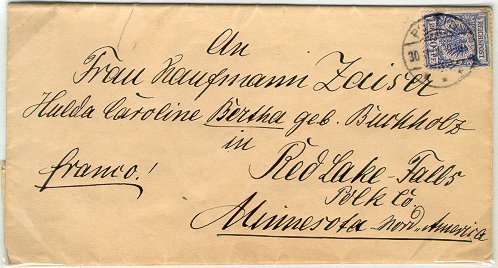 An
Frau Kaufmann Zaiser
Hulda Caroline Bertha geb. Buchholz
in
franco!
Red Lake-Falls
Polk Co.
Minnesota Nord-America
30